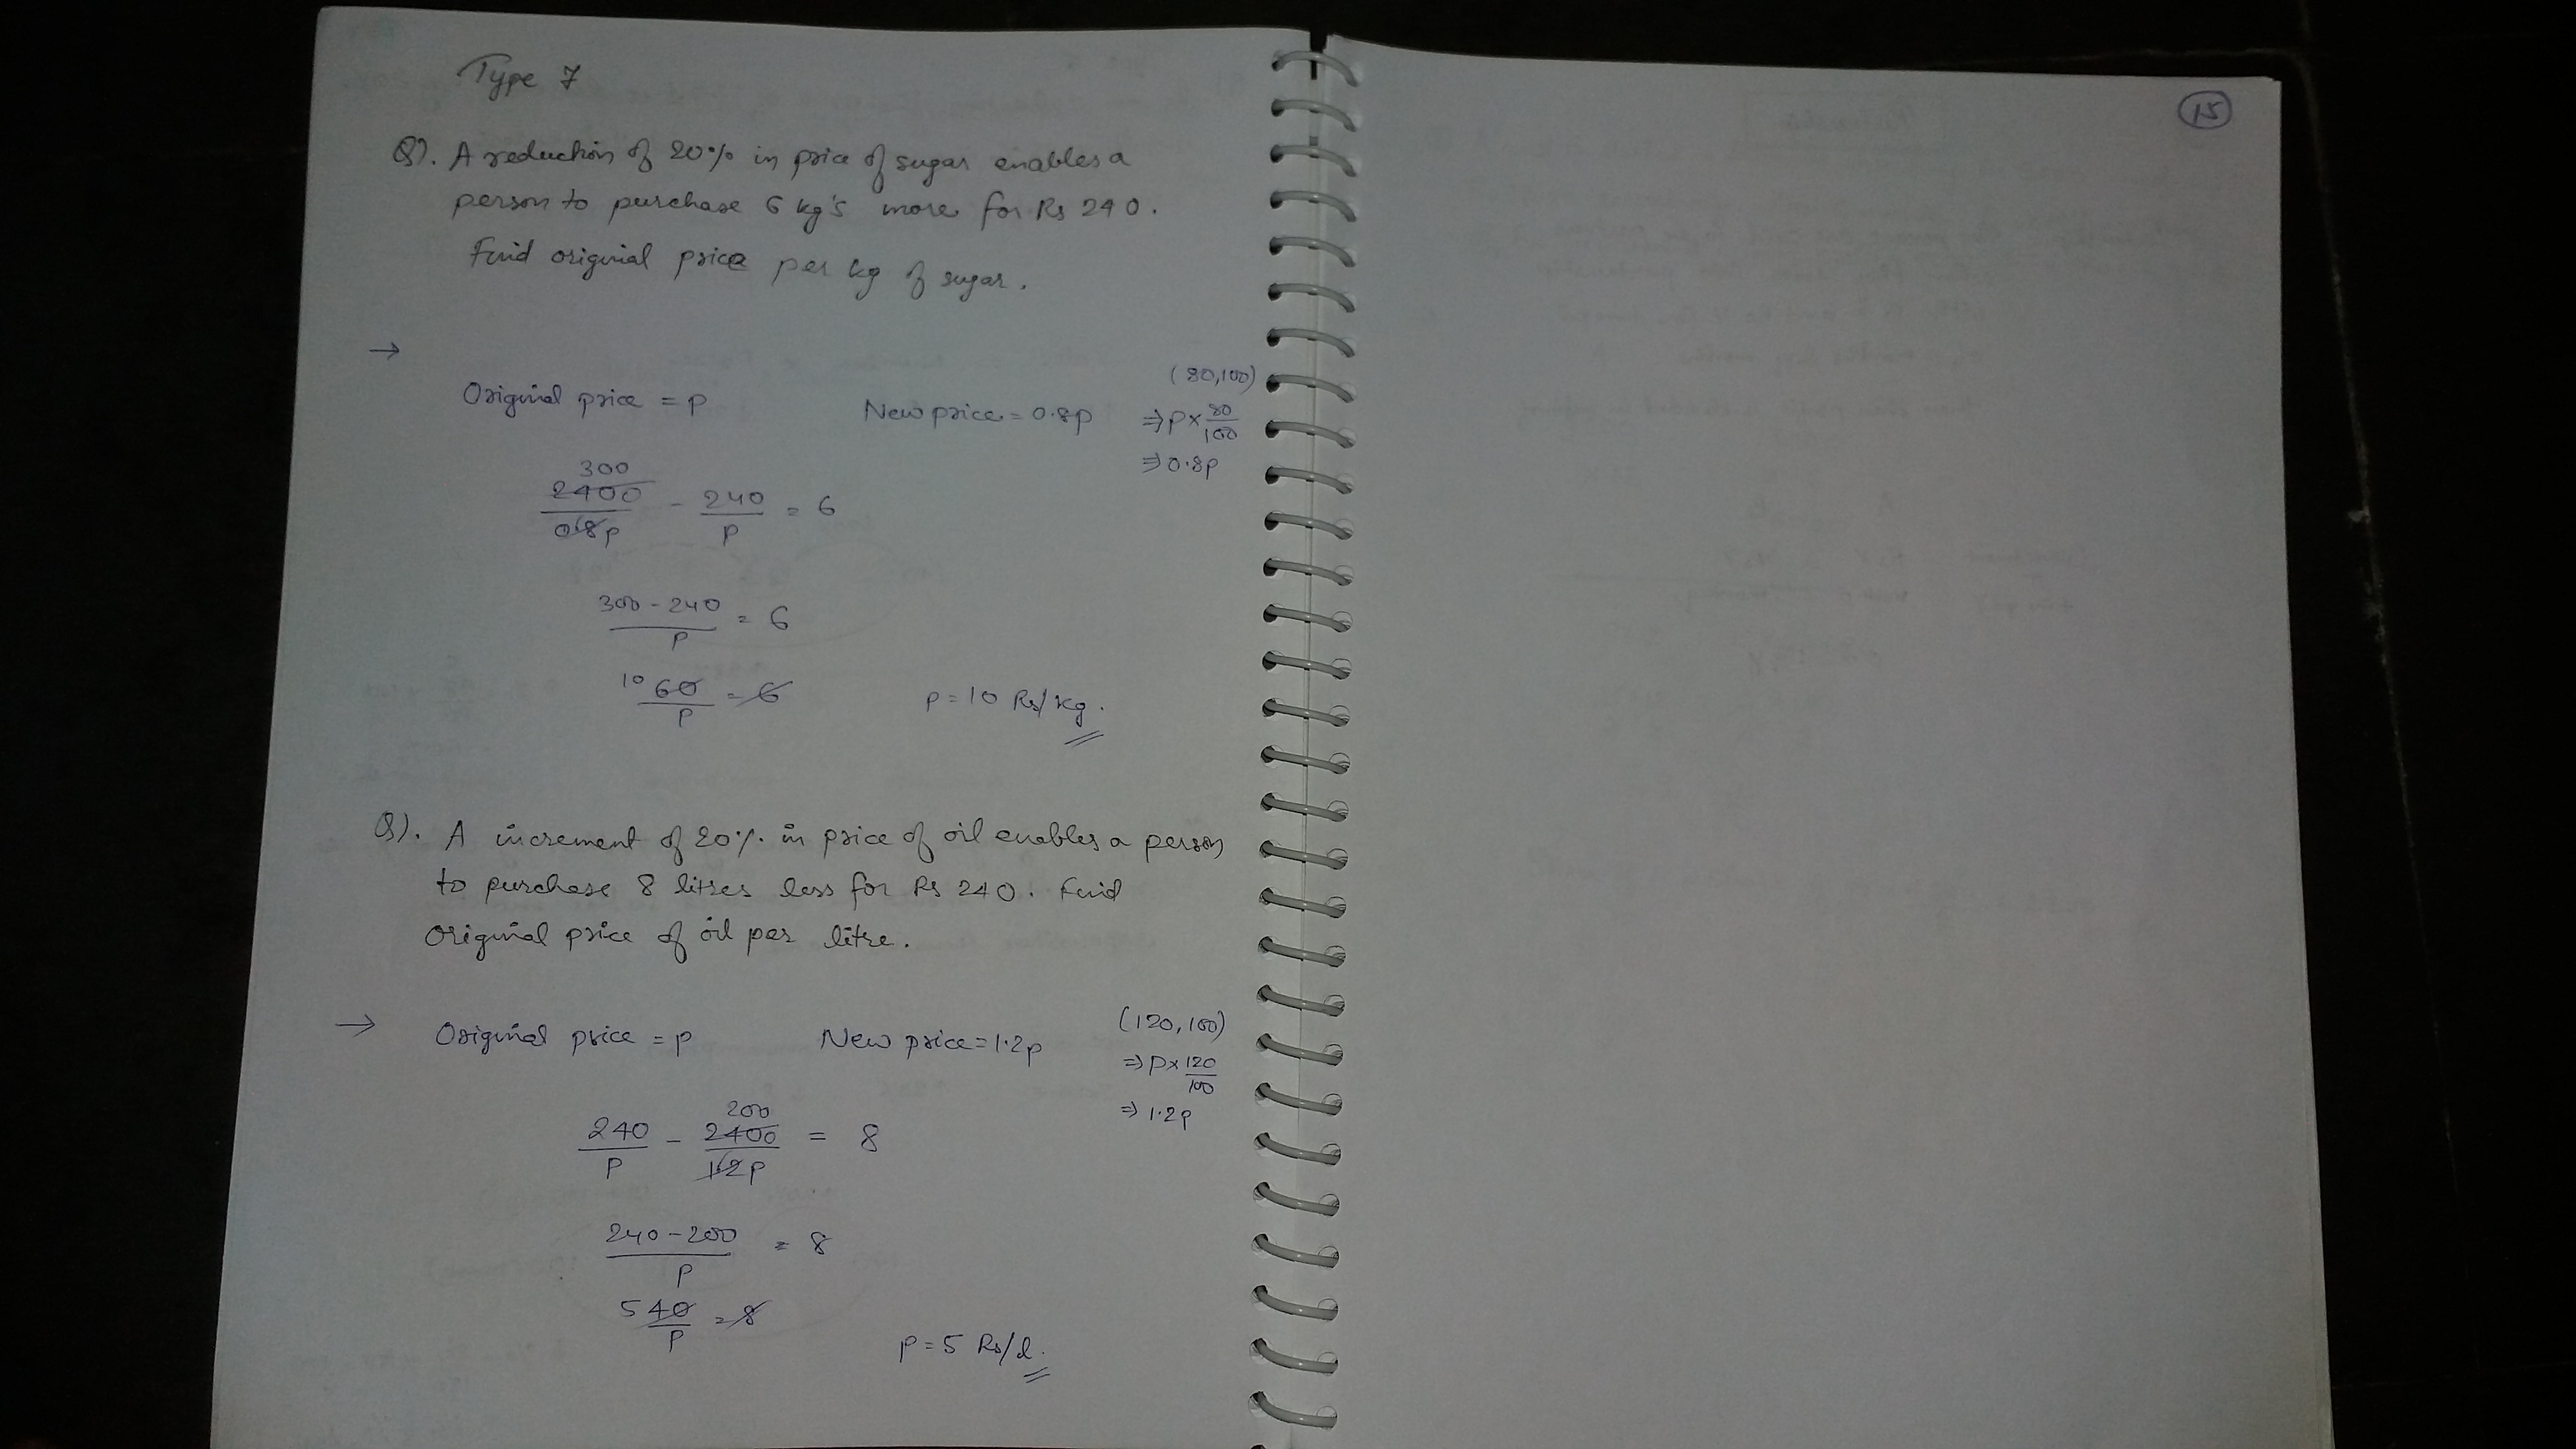 Type 7
Q). A reduction of 20% in price of sugar enables a
person to purchase 6 kg's more for Rs 240.
Find original price per kg of sugar.
→
Original price = p    New price = 0.8p
(80,100)
⇒ p × 80/100
⇒ 0.8p
300
2400/0.8p - 240/p = 6
300 - 240/p = 6
10 60/p = 6    p = 10 Rs/kg.
Q). A increment of 20% in price of oil enables a person
to purchase 8 litres less for Rs 240. Find
original price of oil per litre.
→ Original price = p    New price = 1.2p
(120,100)
⇒ p × 120/100
⇒ 1.2p
200
240/p - 2400/12p = 8
240 - 200/p = 8
5 40/p = 8
p = 5 Rs/l.
15